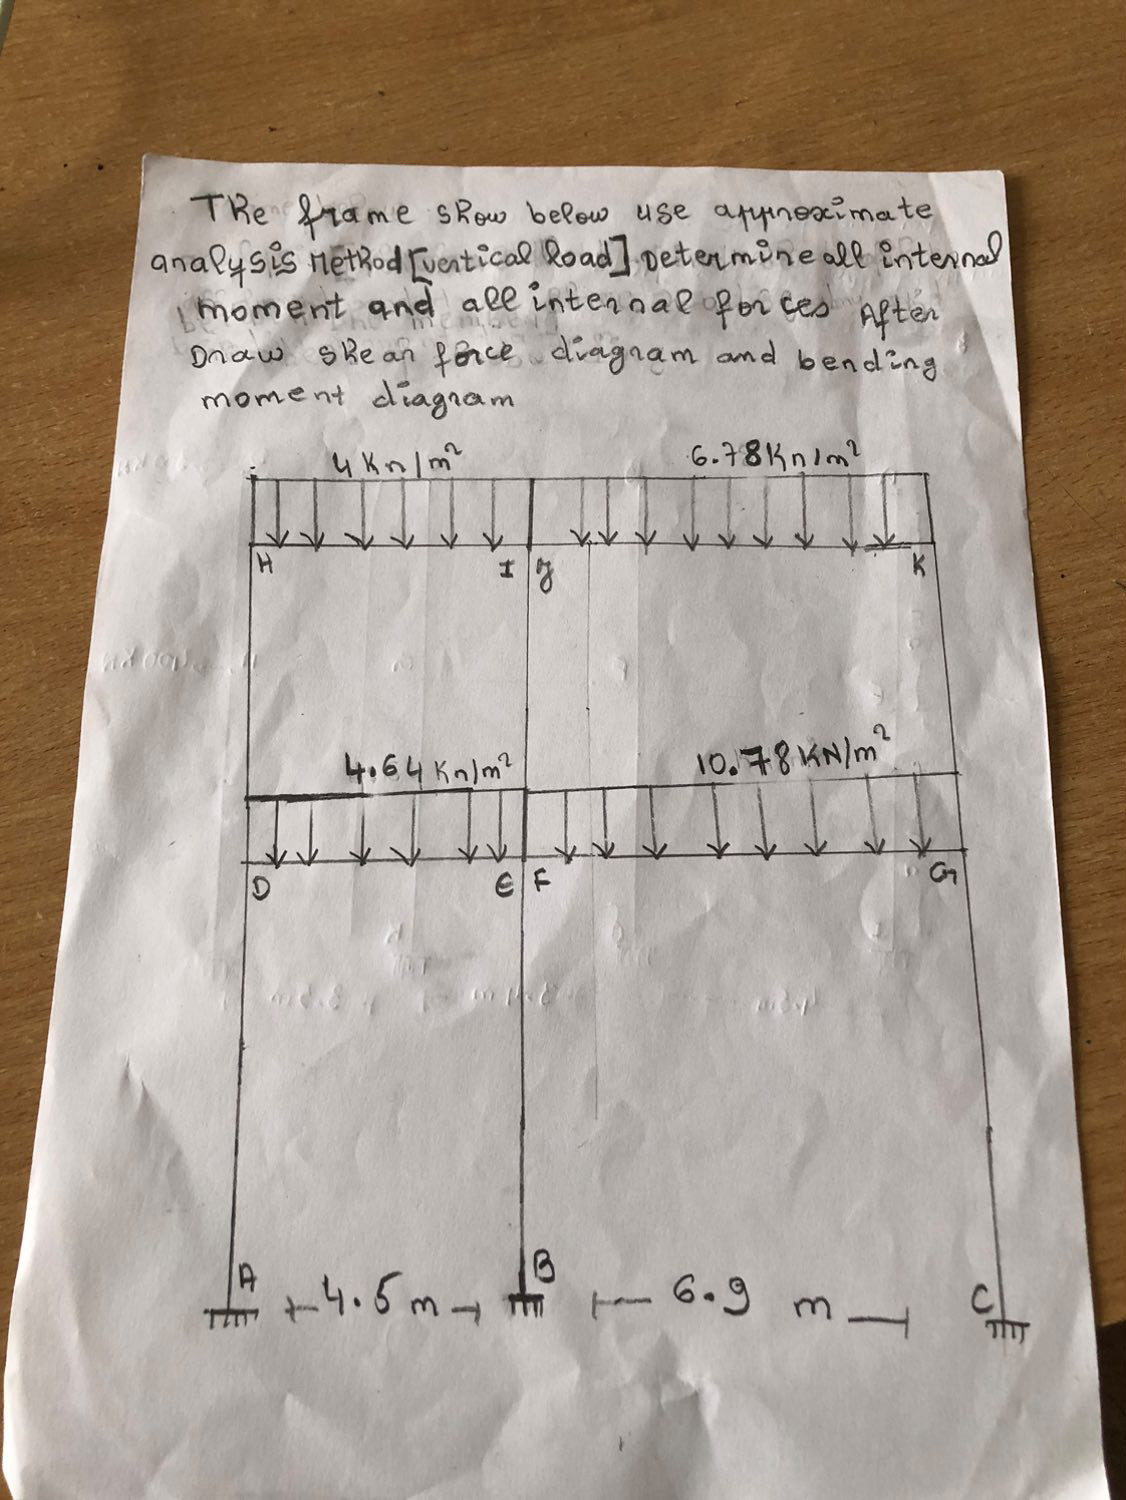 The frame show below use approximate
analysis Method [vertical load] Determine all internal
moment and all internal forces After
Draw shear force diagram and bending
moment diagram
4 Kn/m² 6.78 Kn/m²
H I J K
4.64 Kn/m² 10.78 KN/m²
D E F G
A B C
4.5 m 6.9 m